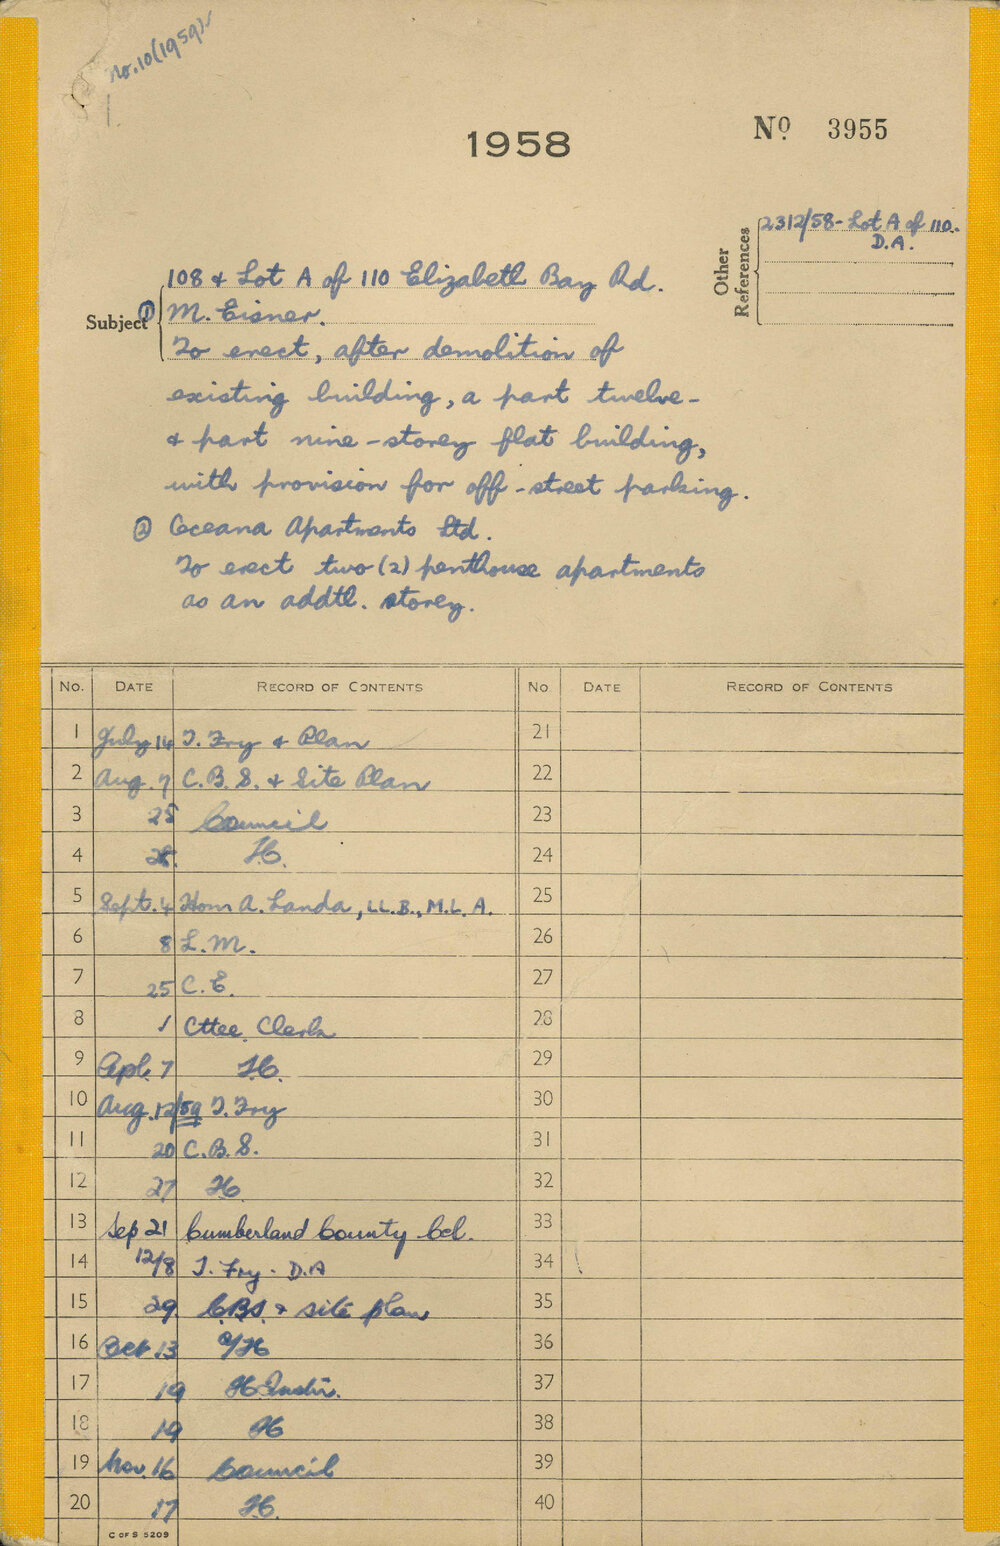 No.10(1959)
1958
No 3955
Other References
2312/58 - Lot A of 110.
D.A.
Subject
108 & Lot A of 110 Elizabeth Bay Rd.
① M. Eisner.
To erect, after demolition of
existing building, a part twelve-
& part nine-storey flat building,
with provision for off-street parking.
② Oceana Apartments Ltd.
To erect two (2) penthouse apartments
as an addtl. storey.
No. DATE RECORD OF CONTENTS No DATE RECORD OF CONTENTS
1 July 14 T. Fry & Plan 21
2 Aug. 7 C.B.S. & Site Plan 22
3 25 Council 23
4 28. 24
5 Sept. 4 Hon A. Landa, LL.B., M.L.A. 25
6 8 L.M. 26
7 25 C.E. 27
8 1 Cttee. Clerk 28
9 Apl. 7 29
10 Aug. 12/59 T. Fry 30
11 20 C.B.S. 31
12 27 32
13 Sep 21 Cumberland County Ccl. 33
14 12/8 T. Fry. D.A 34
15 29. CBS. & site plan 35
16 Oct 13 36
17 19 37
18 19 38
19 Nov. 16 Council 39
20 17 40
C OF S 5209